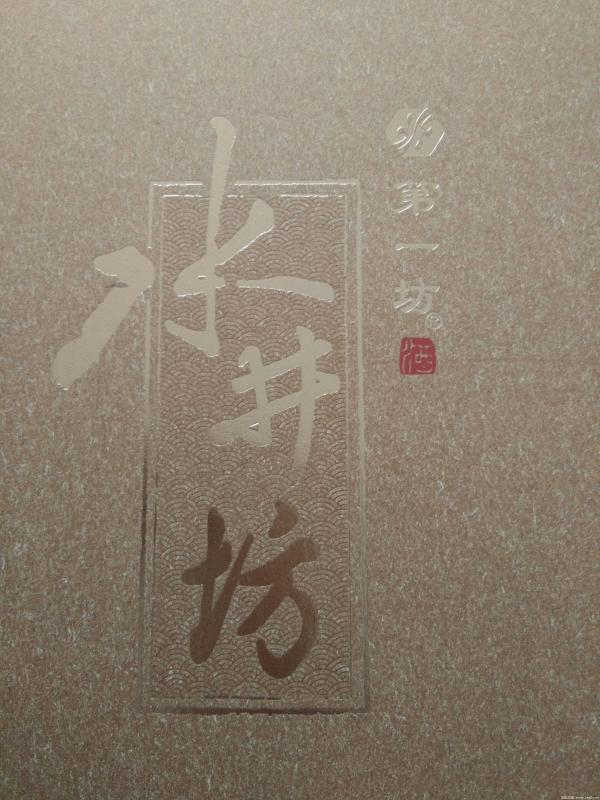 水井坊
第一坊®
酒